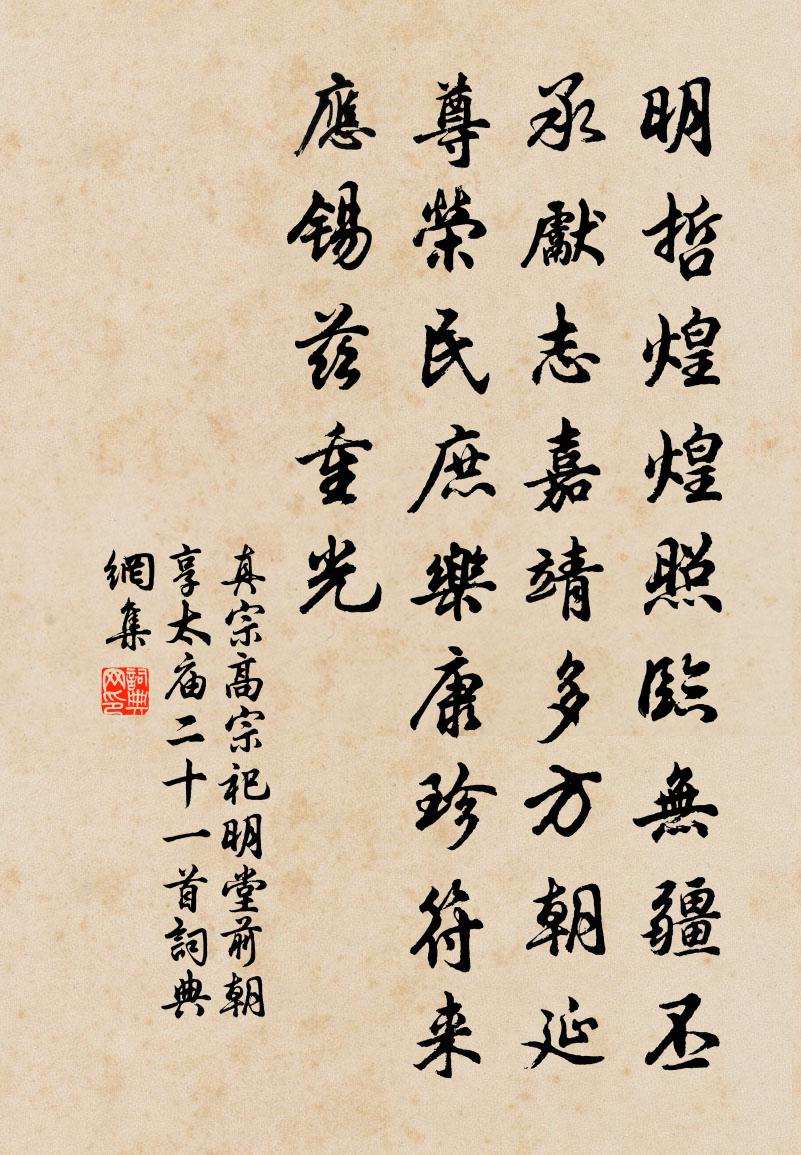 明哲煌煌照臨無疆丕
承獻志嘉靖多方朝延
尊榮民庶樂康珍符来
應錫兹重光
真宗高宗祀明堂前朝
享太庙二十一首詞典
網集
詞典网印